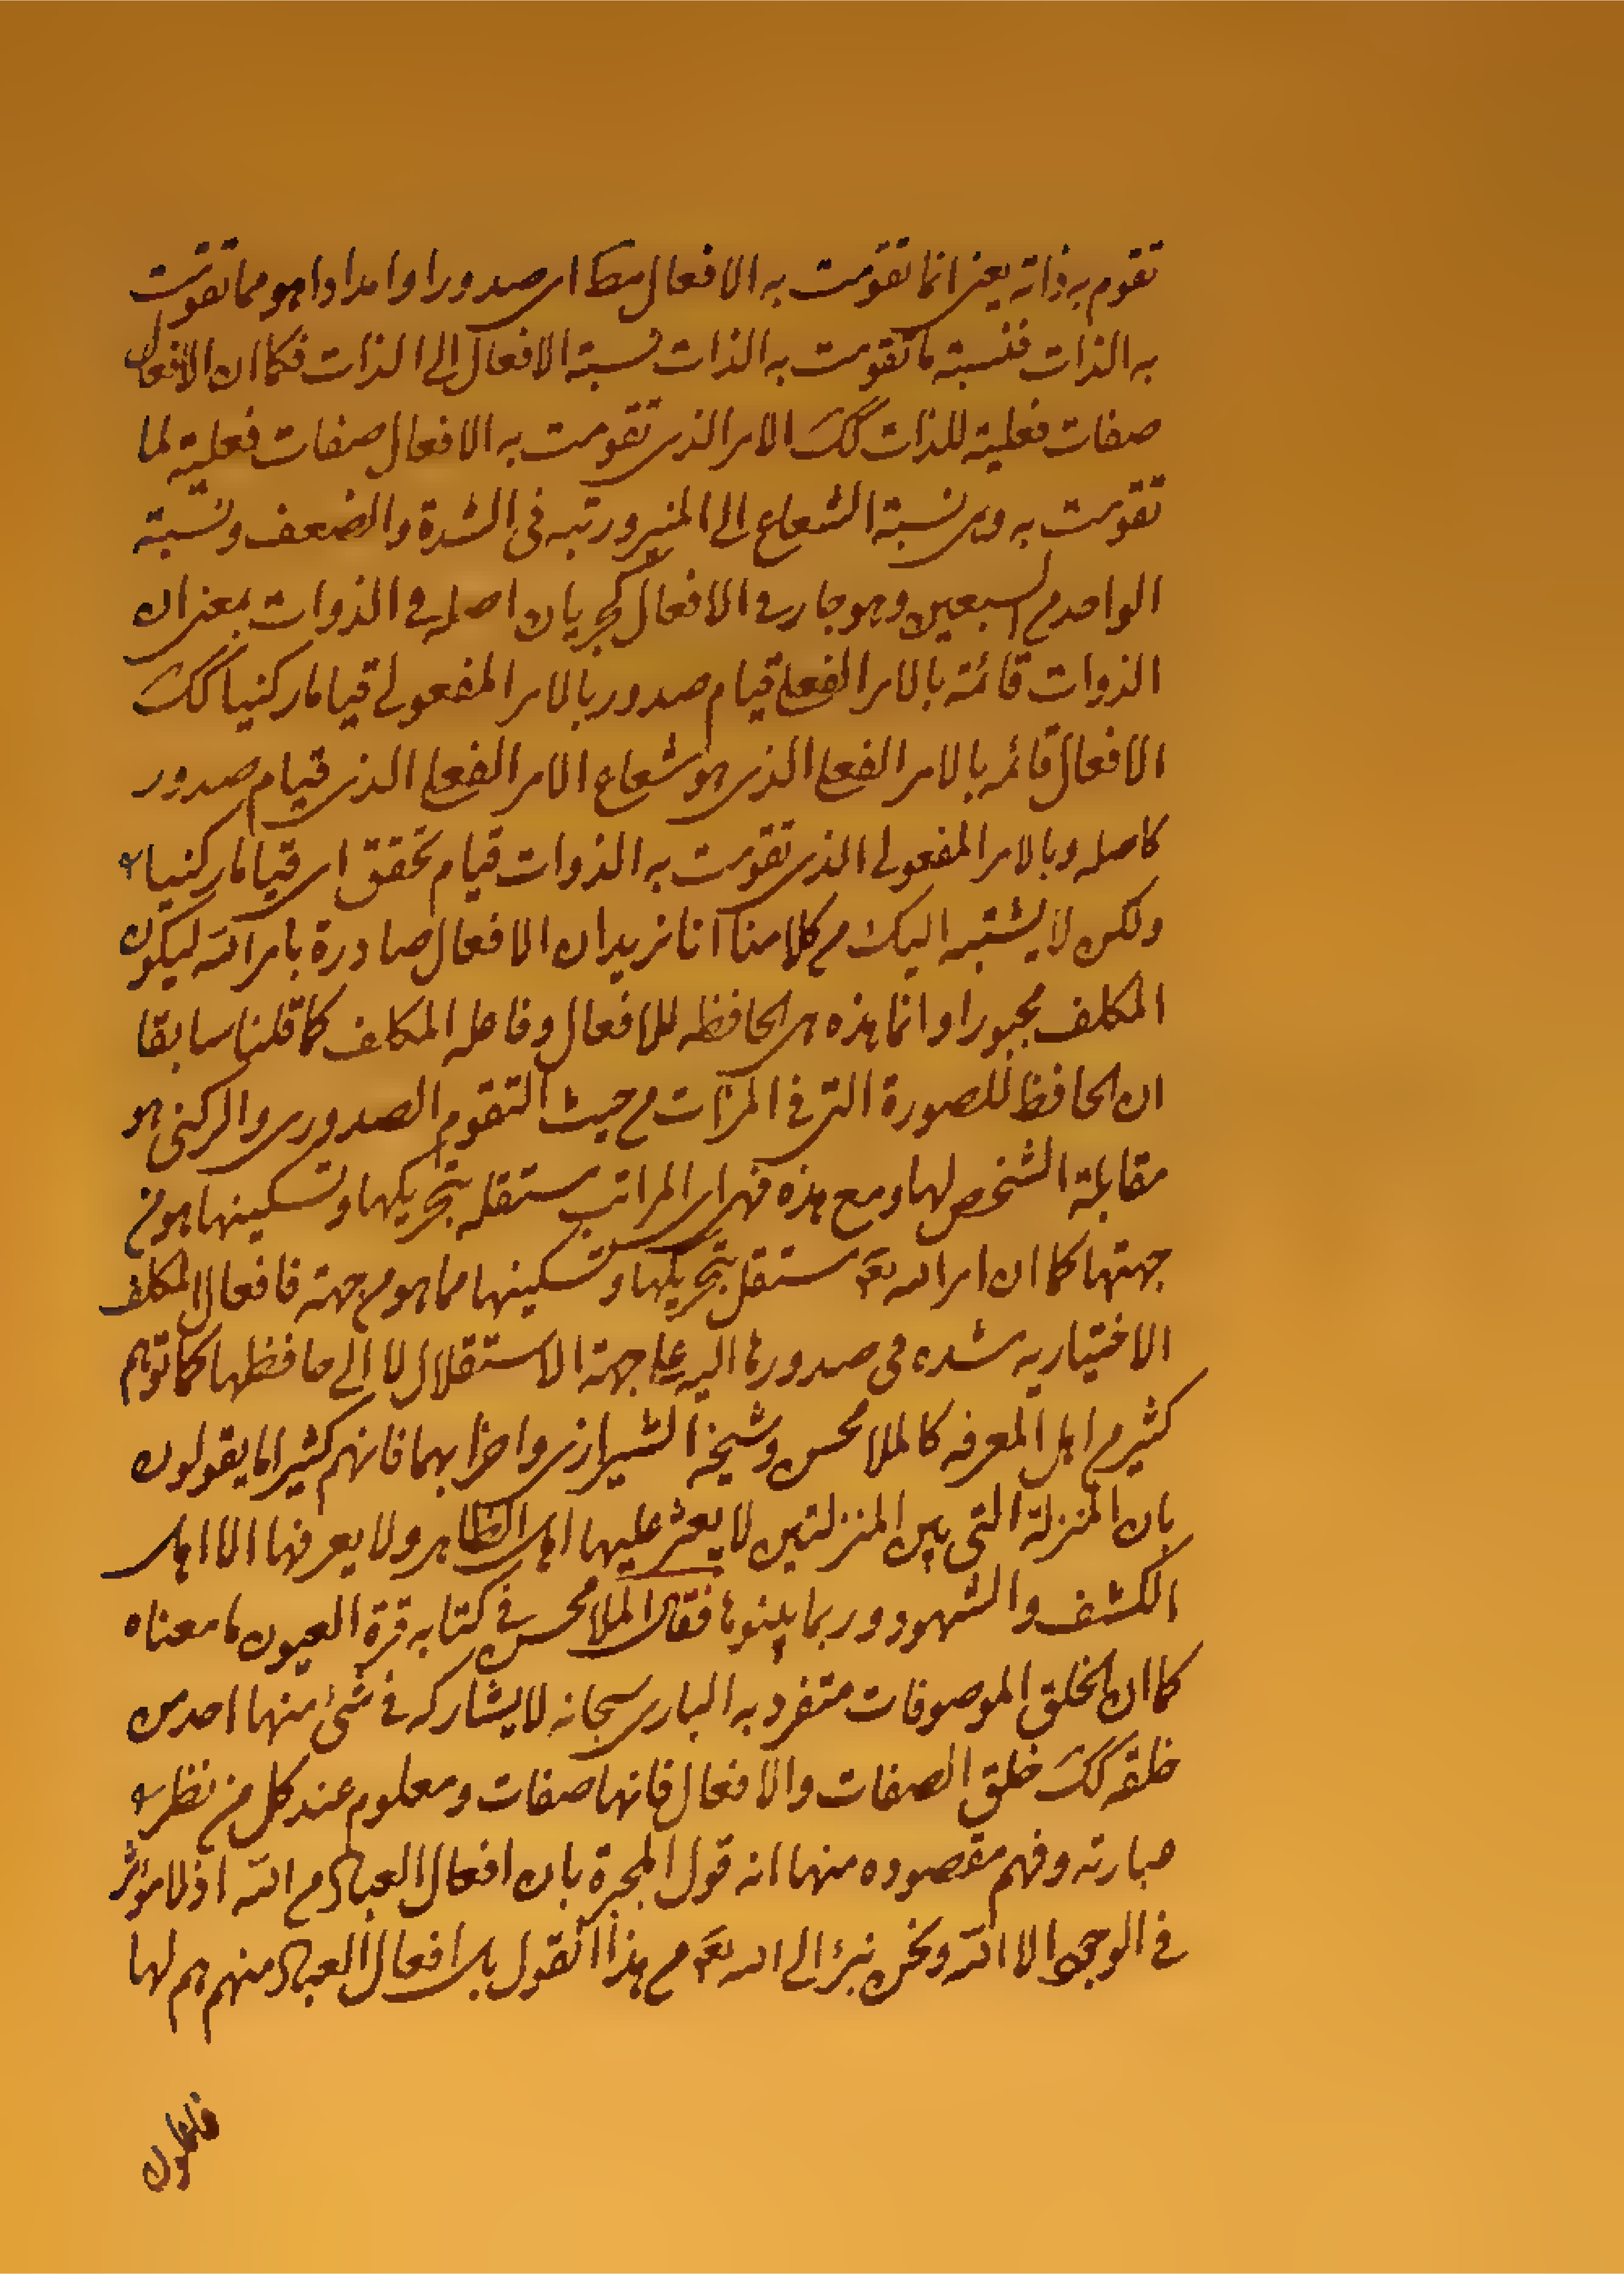 تقوم به ذاته يعنى انما تقومت به الافعال مط اى صدورا وامدادا هو مما تقومت
به الذات فنسبة ما تقومت به الذات نسبة الافعال الى الذات فكما ان الافعال
صفات فعلية للذات كك الامر الذى تقومت به الافعال صفات فعلية لما
تقومت به وهى نسبة الشعاع الى المنير ورتبه فى الشدة والضعف ونسبة
الواحد من السبعين وهو جار فى الافعال كجريان اصله فى الذوات بمعنى ان
الذوات قائمة بالامر الفعلى قيام صدور بالامر المفعولى قياما ركنيا كك
الافعال قائمه بالامر الفعلى الذى هو شعاع الامر الفعلى الذى قيام صدور
كاصله وبالامر المفعولى الذى تقومت به الذوات قيام تحقق اى قياما ركنيا
ولكن لا يشتبه اليك من كلامنا انا نريد ان الافعال صادرة بامر الله ليكون
المكلف مجبورا وانما هذه هى الحافظه للافعال وفاعله المكلف كما قلنا سابقا
ان الحافظ للصورة التى فى المرآت من حيث التقوم الصدورى والركنى هو
مقابلة الشخص لها ومع هذه فهى اى المراتب مستقله بتحريكها وتسكينها هو من
جهتها كما ان امر الله تعه مستقل بتحريكها وتسكينها مما هو من جهته فافعال المكلف
الاختياريه فى صدورها اليه على جهة الاستقلال لا الى حافظها كما توهم
كثير من اهل المعرفه كالملا محسن وشيخه الشيرازى واضرابهما فانهم كثيرا ما يقولون
بان المنزلة التى بين المنزلتين لا يعثر عليها اهل الظاهر ولا يعرفها الا اهل
الكشف والشهود وربما بينوها فقال الملا محسن فى كتابه قرة العيون ما معناه
كما ان الخلق الموصوفات متفرد به البارى سبحانه لا يشاركه فى شئ منها احد من
خلقه كك خلق الصفات والافعال فانها صفات ومعلوم عند كل من نظر
عبارته وفهم مقصوده منها انه قول المجبرة بان افعال العباد من الله اذ لا مؤثر
فى الوجود الا الله ونحن نبرئ الى الله تعه من هذا القول بل افعال العباد منهم هم لها